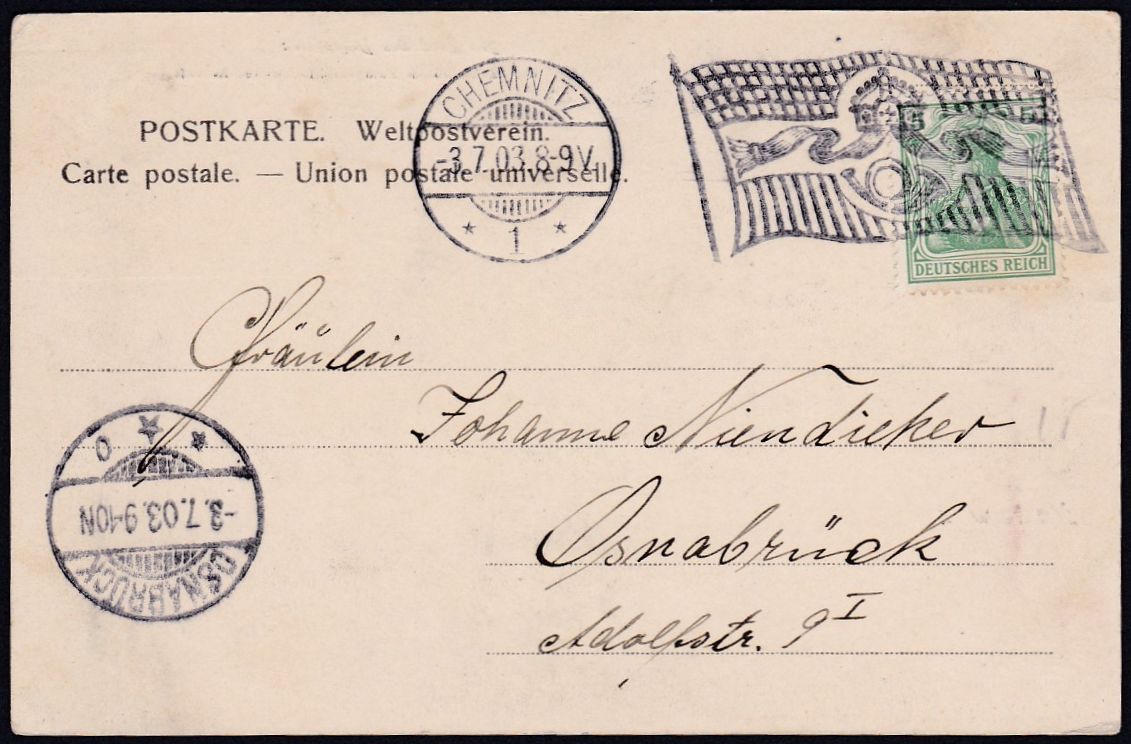 CHEMNITZ
-3.7.03.8-9V.
* 1 *
5 5
DEUTSCHES REICH
POSTKARTE. Weltpostverein.
Carte postale. — Union postale universelle.
Fräulein
Johanne Niendieker
Osnabrück
Adolfstr. 9 I
OSNABRÜCK
-3.7.03.9-10N
* * o